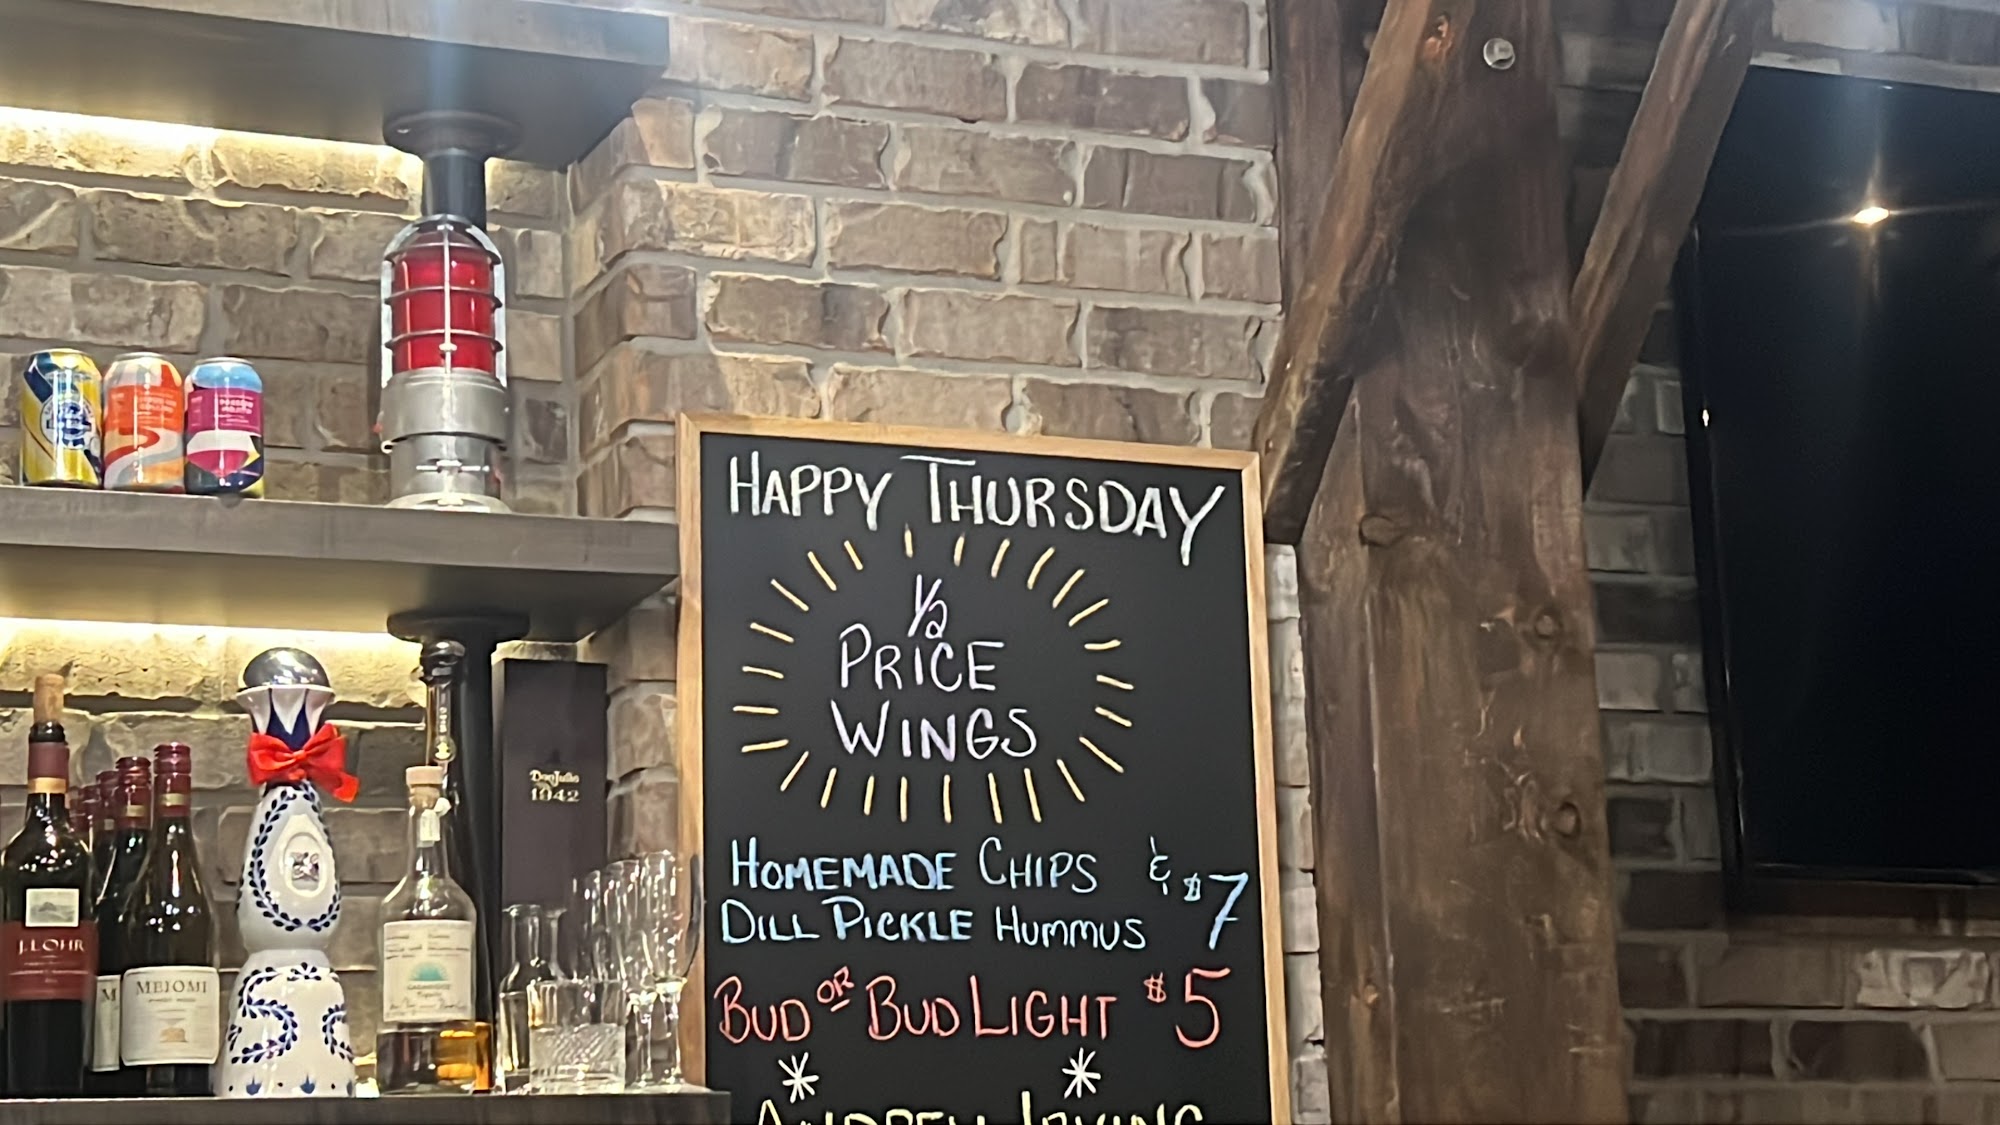 HAPPY THURSDAY
1/2
PRICE
WINGS
HOMEMADE CHIPS &
DILL PICKLE HUMMUS $7
BUD OR BUD LIGHT $5
ANDREW IRVING
Don Julio
1942
J.LOHR
MEIOMI
M